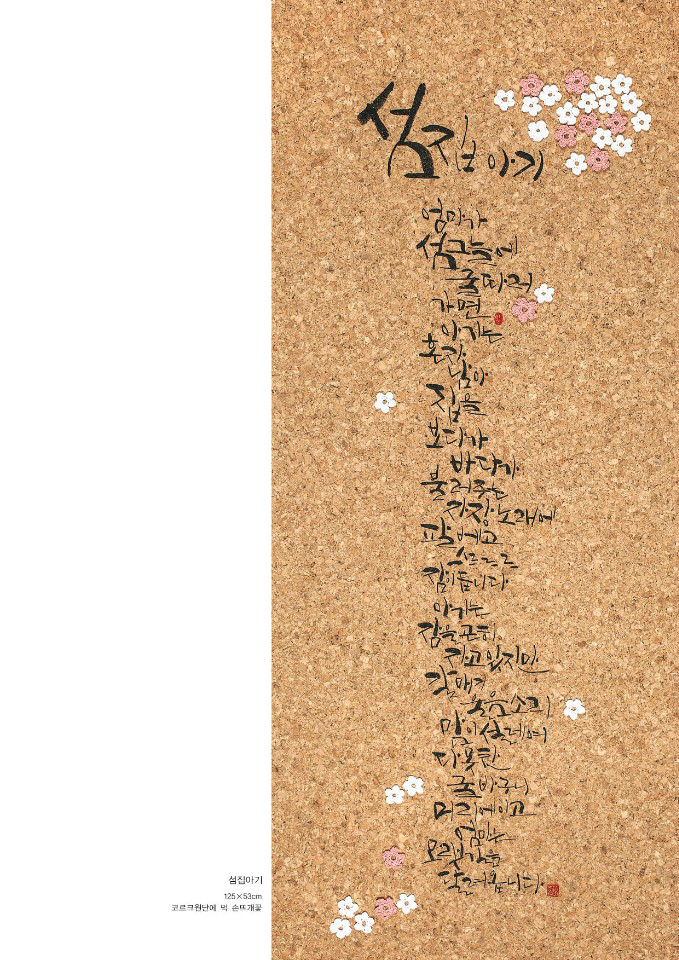 섬집아기
엄마가
섬그늘에
굴따러
가면
아기는
혼자
남아
집을
보다가
바다가
불러주는
자장노래에
팔베고
스르르르
잠이듭니다
아기는
잠을곤히
자고있지만
갈매기
울음소리
맘이설레여
다못찬
굴바구니
머리에이고
엄마는
모랫길을
달려옵니다
섬집아기
125×53cm
코르크원단에 먹 손뜨개꽃